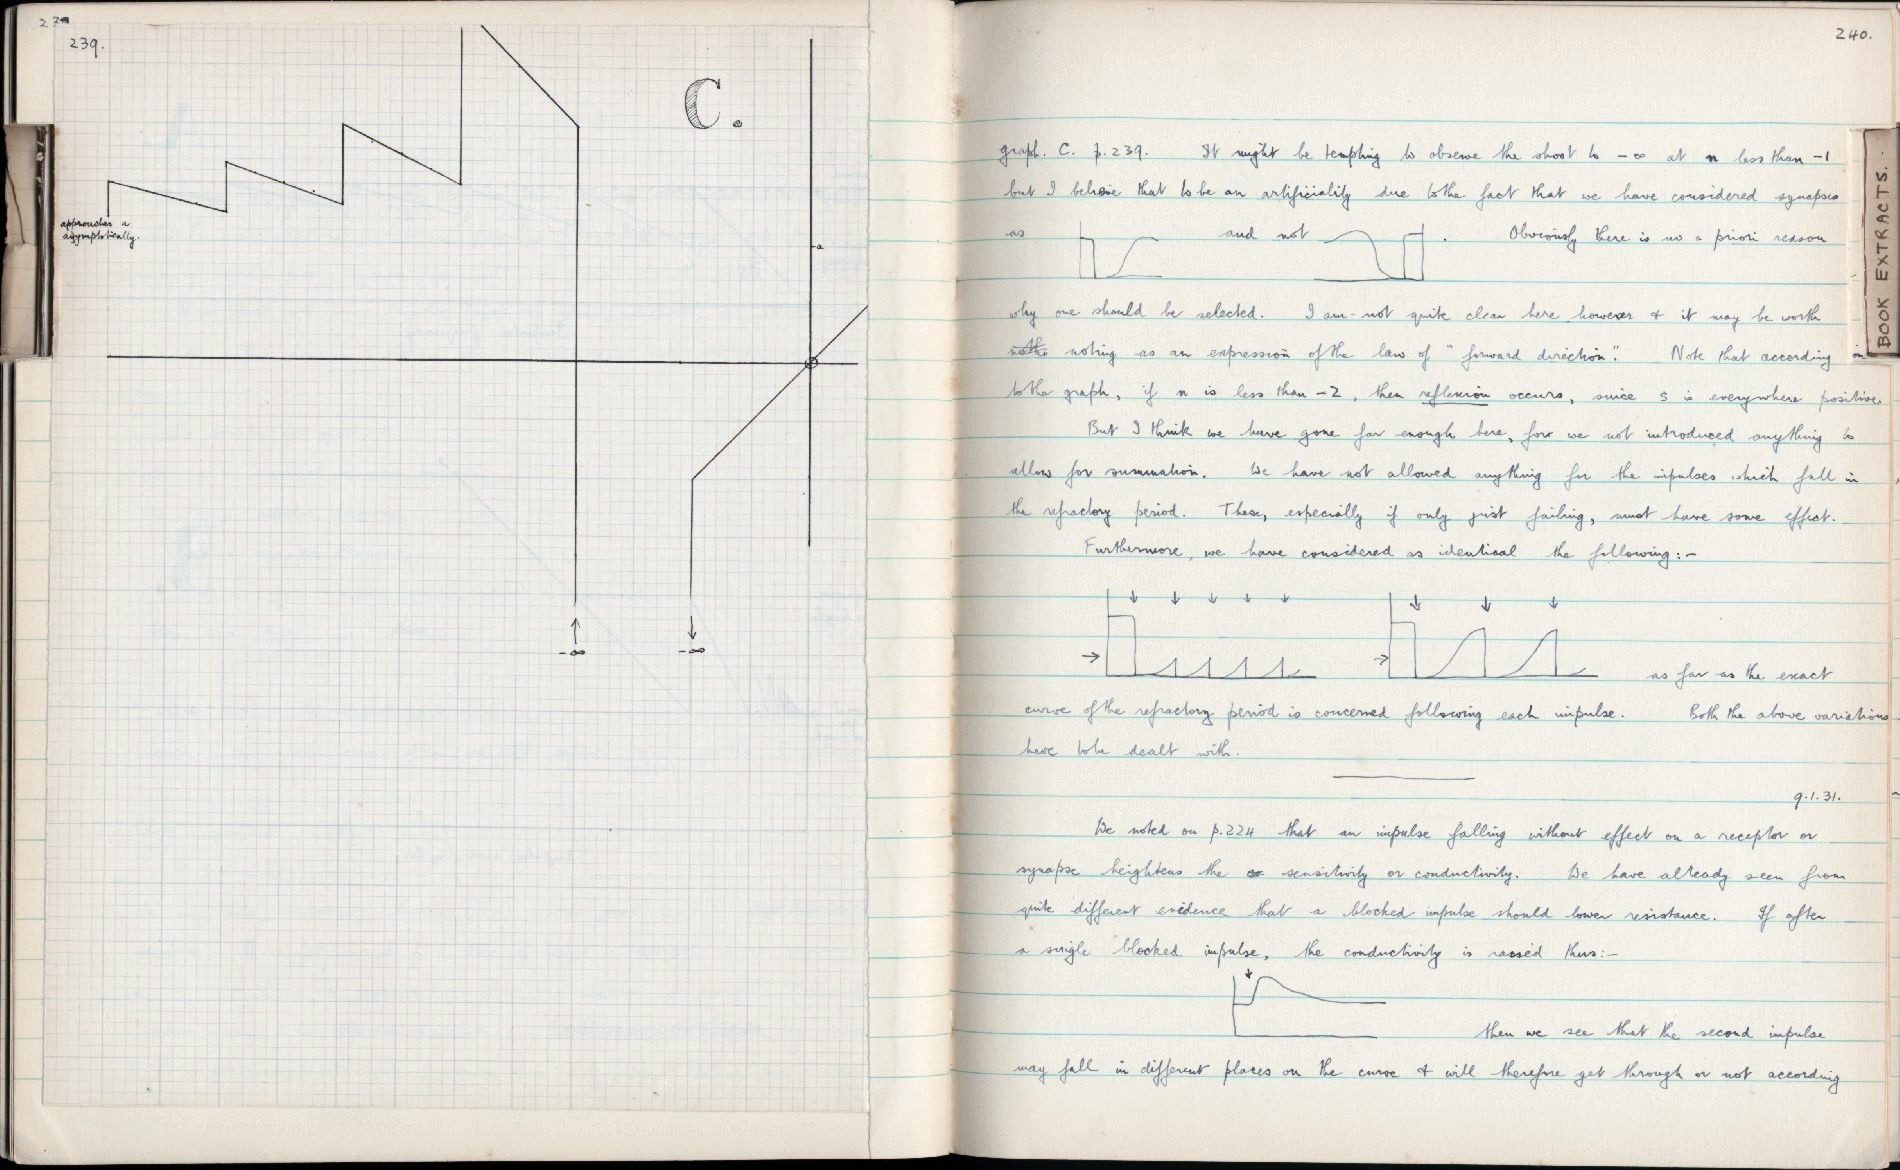 239.
C.
approaches a
asymptotically.
a
-∞
-∞
240.
graph. C. p.239. It might be tempting to observe the shoot to -∞ at n less than -1
but I believe that to be an artificiality due to the fact that we have considered synapses
as and not . Obviously there is no a priori reason
why one should be selected. I am not quite clear here however & it may be worth
noting as an expression of the law of "forward direction". Note that according
to the graph, if n is less than -2, then reflexion occurs, since s is everywhere positive.
But I think we have gone far enough here, for we not introduced anything to
allow for summation. We have not allowed anything for the impulses which fall in
the refractory period. These, especially if only just failing, must have some effect.
Furthermore, we have considered as identical the following:-
as far as the exact
curve of the refractory period is concerned following each impulse. Both the above variations
have to be dealt with.
9.1.31.
We noted on p.224 that an impulse falling without effect on a receptor or
synapse heightens the sensitivity or conductivity. We have already seen from
quite different evidence that a blocked impulse should lower resistance. If after
a single blocked impulse, the conductivity is raised thus:-
then we see that the second impulse
may fall in different places on the curve & will therefore get through or not according
BOOK EXTRACTS.